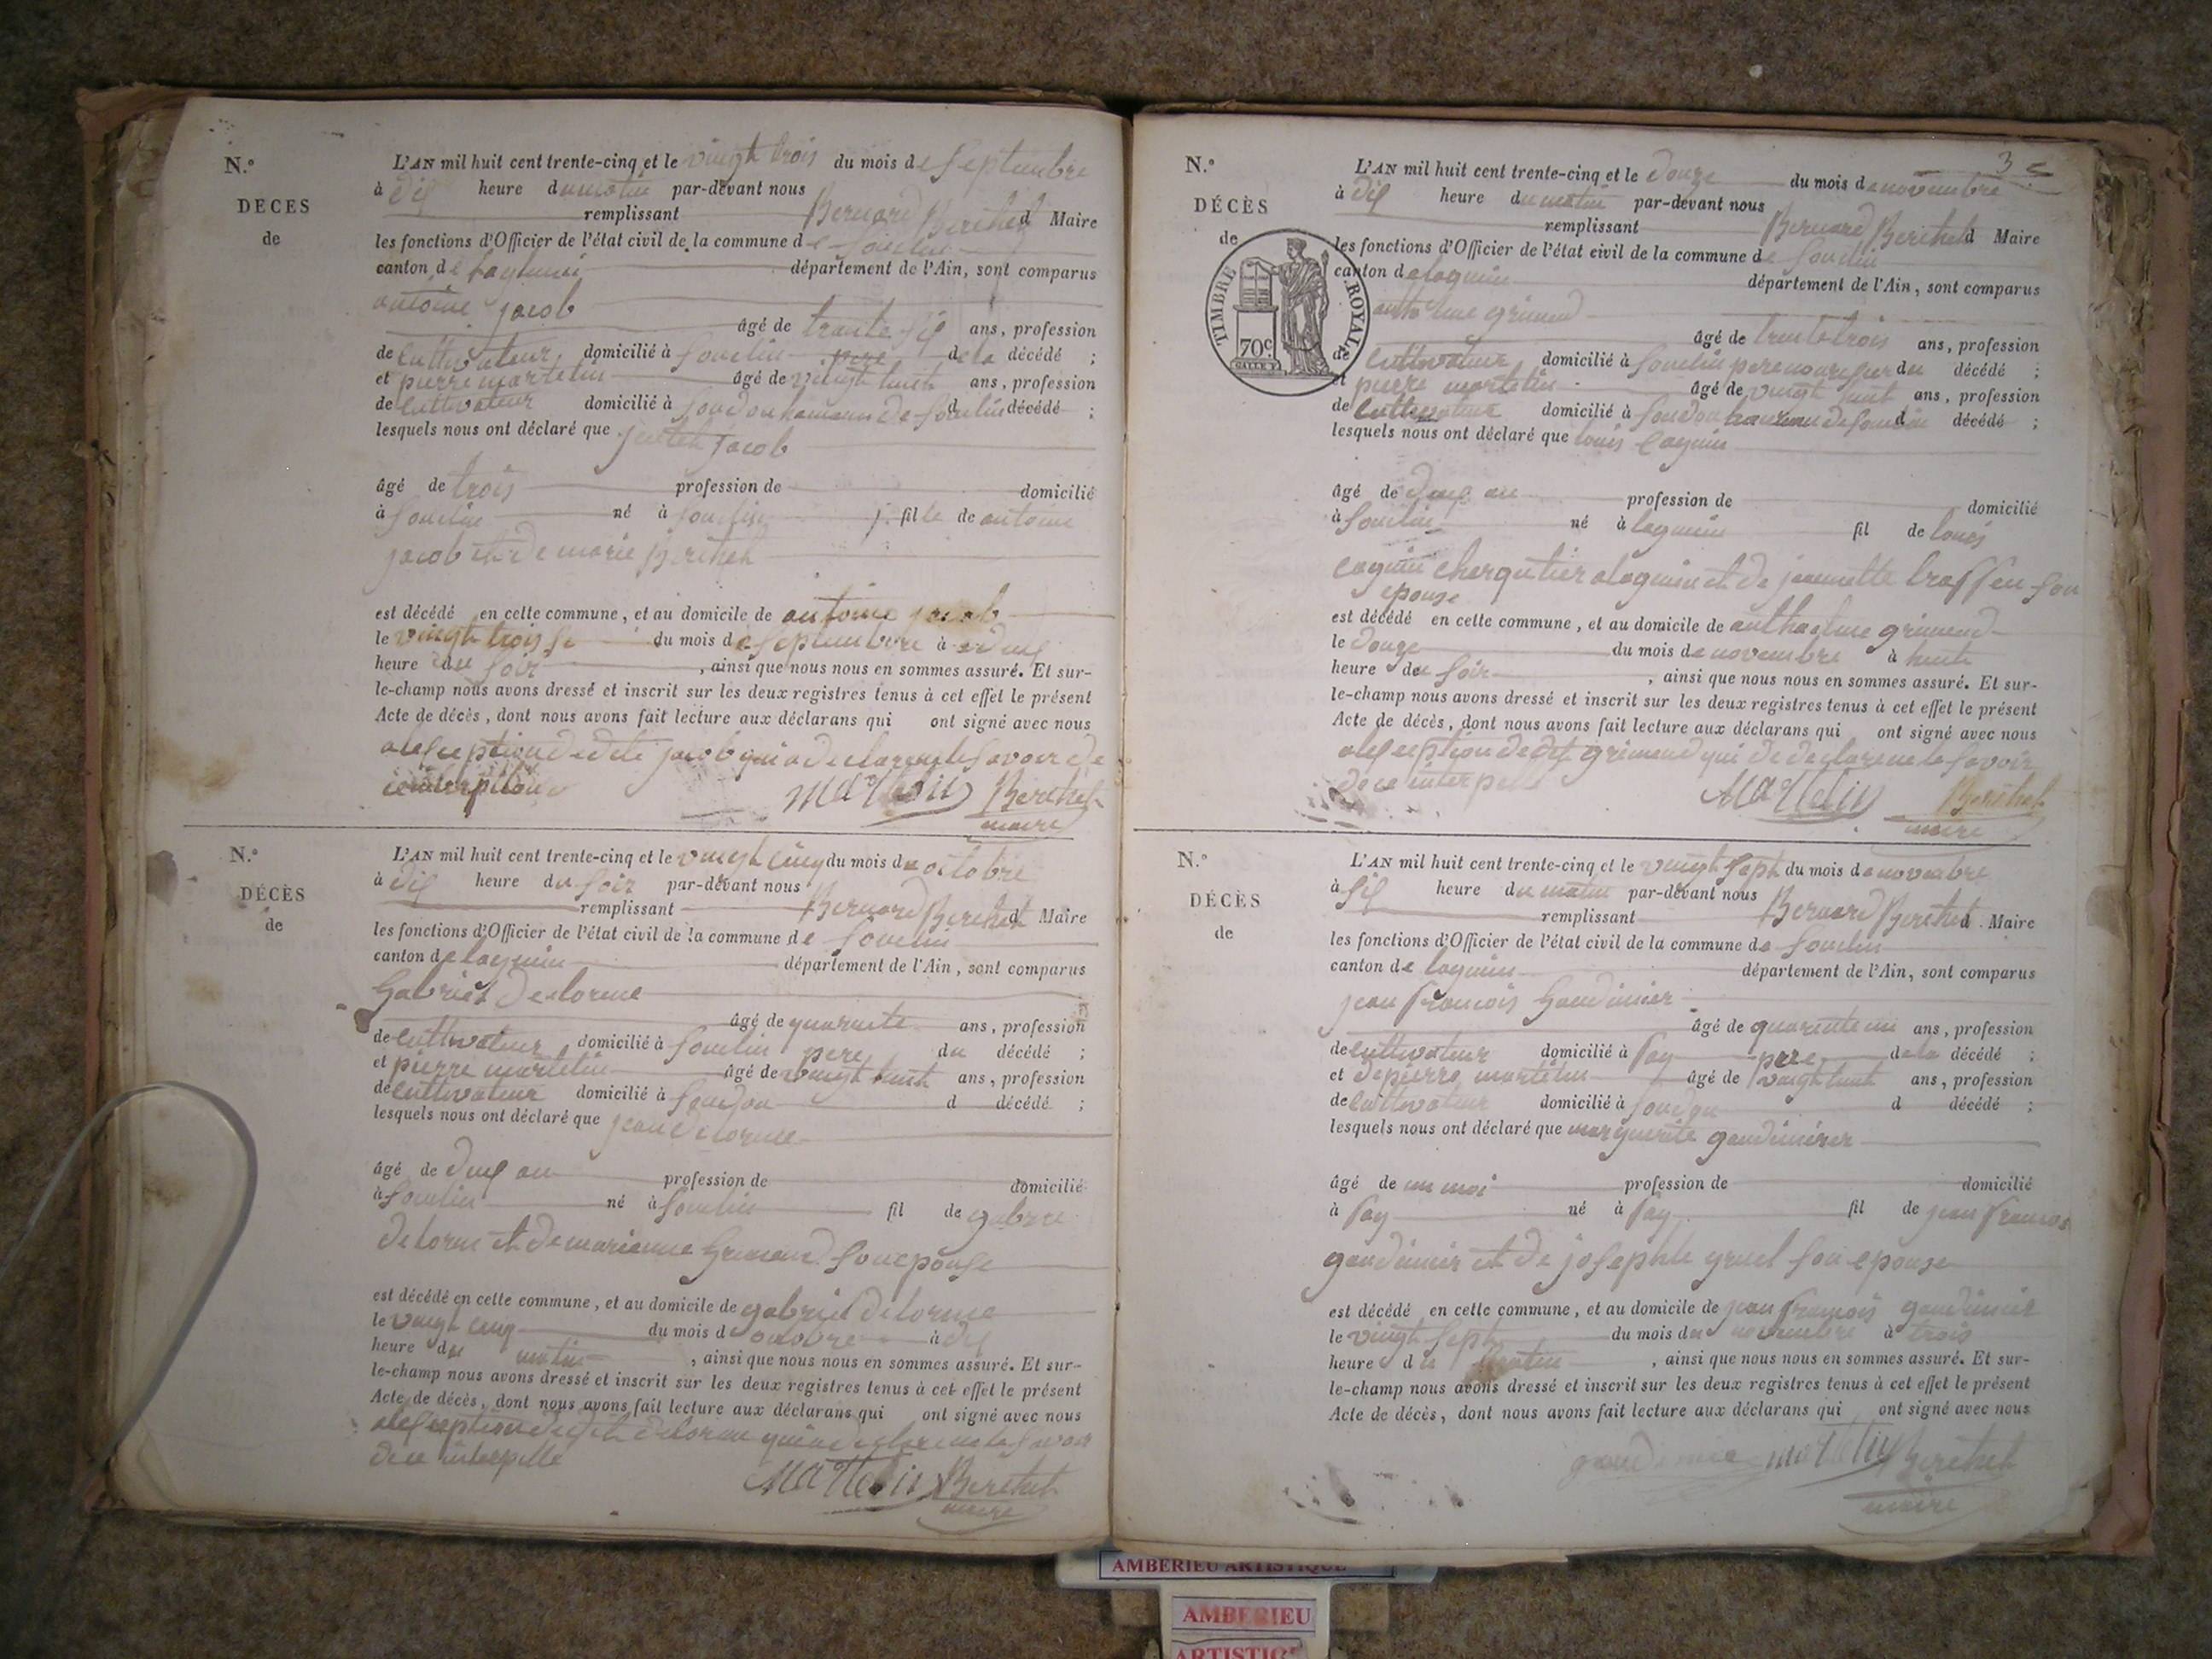 N.º
DECES
de
L'AN mil huit cent trente-cinq et le vingt trois du mois de Septembre
à dix heure du matin par-devant nous
remplissant Bernard Berthet d Maire
les fonctions d'Officier de l'état civil de la commune de Souclin
canton de lagnieu département de l'Ain, sont comparus
antoine jacob
âgé de trante six ans, profession
de cultivateur domicilié à Souclin pere de la décédé ;
et pierre martelin âgé de vingt huit ans, profession
de cultivateur domicilié à de Souclin décédé ;
lesquels nous ont déclaré que jacob
âgé de trois profession de domicilié
à Souclin né à Souclin fille de antoine
jacob et de marie Berthet
est décédé en cette commune, et au domicile de antoine jacob
le vingt trois du mois de Septembre à
heure du soir , ainsi que nous nous en sommes assuré. Et sur-
le-champ nous avons dressé et inscrit sur les deux registres tenus à cet effet le présent
Acte de décès, dont nous avons fait lecture aux déclarans qui ont signé avec nous
jacob qui a declare savoir de
Martelin Berthet
maire
N.º
DÉCÈS
de
L'AN mil huit cent trente-cinq et le vingt cinq du mois de octobre
à dix heure du soir par-devant nous
remplissant Bernard Berthet d Maire
les fonctions d'Officier de l'état civil de la commune de Souclin
canton de lagnieu département de l'Ain, sont comparus
Gabriel Delorme
âgé de quarante ans, profession
de cultivateur domicilié à Souclin pere du décédé ;
et pierre martelin âgé de vingt huit ans, profession
de cultivateur domicilié à Soudon d décédé ;
lesquels nous ont déclaré que jean delorme
âgé de deux an profession de domicilié
à Souclin né à Souclin fil de gabrie
delorme et de marianne Grimand son epouse
est décédé en cette commune, et au domicile de gabriel delorme
le vingt cinq du mois d octobre à dix
heure du matin , ainsi que nous nous en sommes assuré. Et sur-
le-champ nous avons dressé et inscrit sur les deux registres tenus à cet effet le présent
Acte de décès, dont nous avons fait lecture aux déclarans qui ont signé avec nous
delorme qui a declare savoir
de ce
Martelin Berthet
maire
3
N.º
DÉCÈS
de
TIMBRE ROYAL
70c
L'AN mil huit cent trente-cinq et le douze du mois de novembre
à dix heure du matin par-devant nous
remplissant Bernard Berthet d Maire
les fonctions d'Officier de l'état civil de la commune de Souclin
canton de lagnieu département de l'Ain, sont comparus
grimand
âgé de trente trois ans, profession
de cultivateur domicilié à Souclin pere du décédé ;
et pierre martelin âgé de vingt huit ans, profession
de cultivateur domicilié à d décédé ;
lesquels nous ont déclaré que louis
âgé de deux an profession de domicilié
à Souclin né à lagnieu fil de louis
a lagnieu et de jeannette son
epouse
est décédé en cette commune, et au domicile de anthaelme grimand
le douze du mois de novembre à huit
heure du soir , ainsi que nous nous en sommes assuré. Et sur-
le-champ nous avons dressé et inscrit sur les deux registres tenus à cet effet le présent
Acte de décès, dont nous avons fait lecture aux déclarans qui ont signé avec nous
grimand qui savoir
de ce
Martelin Berthet
maire
N.º
DÉCÈS
de
L'AN mil huit cent trente-cinq et le vingt sept du mois de novembre
à six heure du matin par-devant nous
remplissant Bernard Berthet d Maire
les fonctions d'Officier de l'état civil de la commune de Souclin
canton de lagnieu département de l'Ain, sont comparus
jean françois
âgé de quarente un ans, profession
de cultivateur domicilié à pere de la décédé ;
et de pierre martelin âgé de vingt huit ans, profession
de cultivateur domicilié à Soudon d décédé ;
lesquels nous ont déclaré que marguerite
âgé de un moi profession de domicilié
à né à fil de jean françois
et de josephte son epouse
est décédé en cette commune, et au domicile de jean françois
le vingt sept du mois de novembre à trois
heure du matin , ainsi que nous nous en sommes assuré. Et sur-
le-champ nous avons dressé et inscrit sur les deux registres tenus à cet effet le présent
Acte de décès, dont nous avons fait lecture aux déclarans qui ont signé avec nous
martelin Berthet
maire
AMBERIEU ARTISTIQUE
AMBERIEU